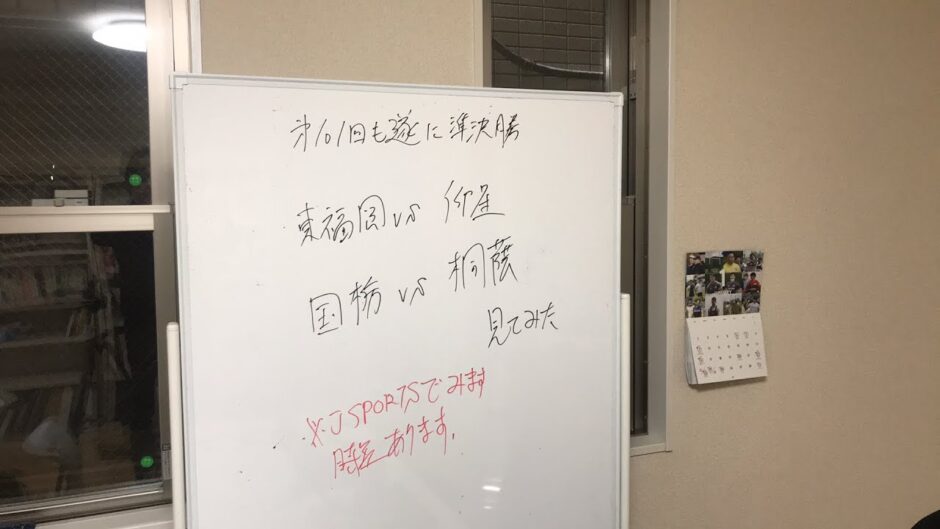 第101回も遂に準決勝
東福岡 vs 仰星
国栃 vs 桐蔭
見てみた
※J SPORTSでみます
時差あります。